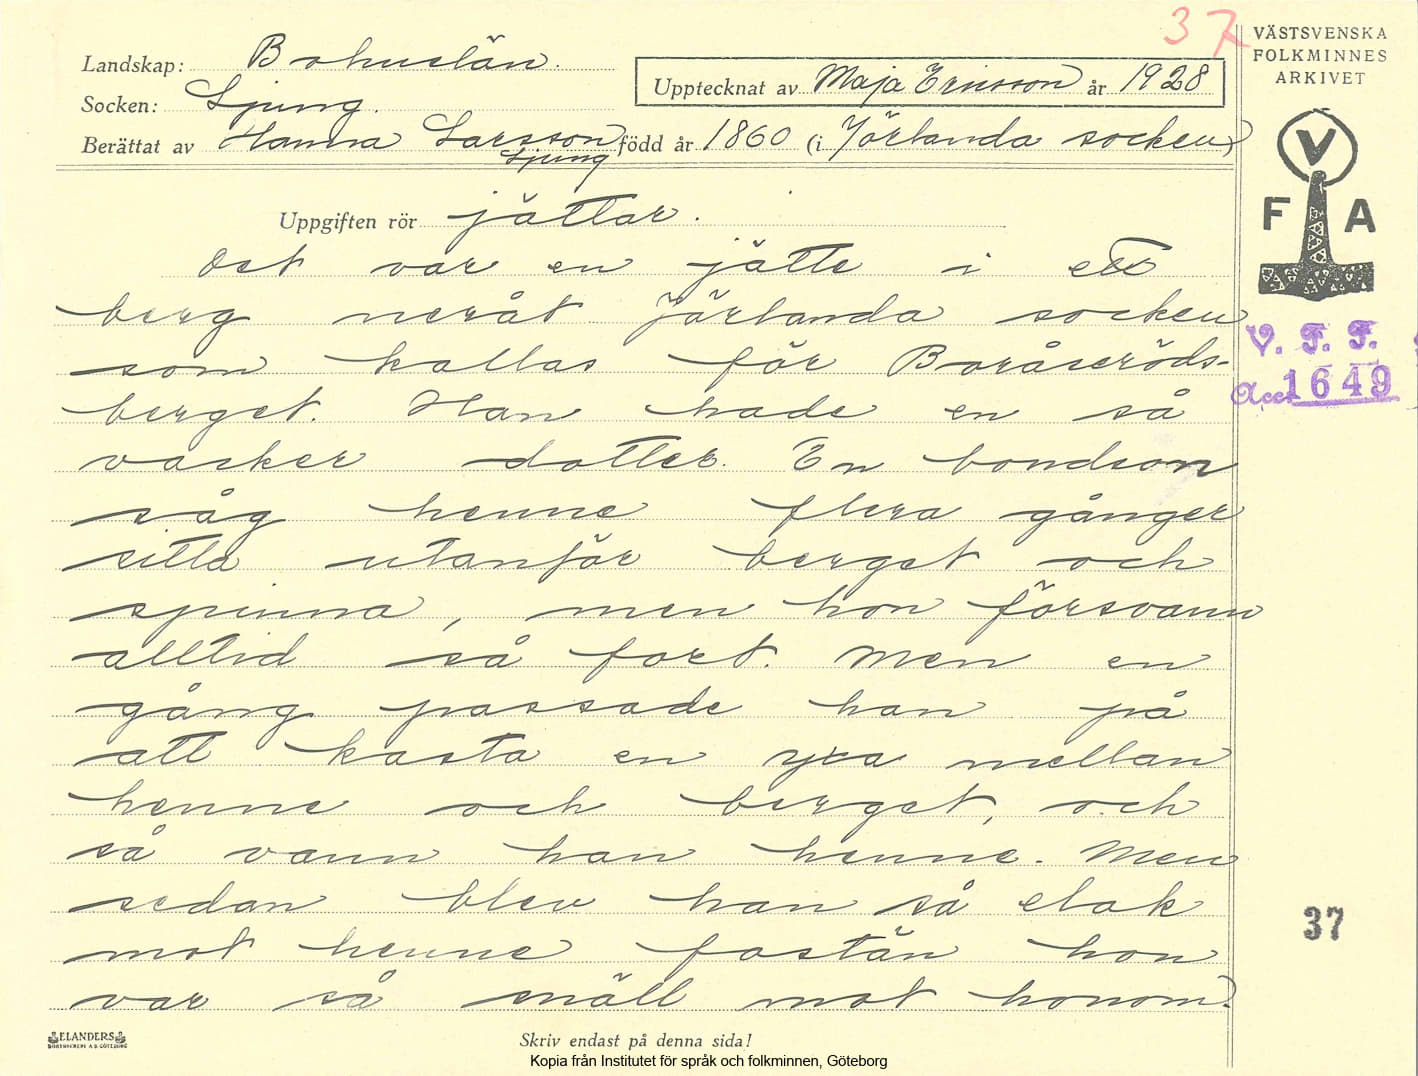 37
VÄSTSVENSKA
FOLKMINNES
ARKIVET
Landskap: Bohuslän.
Upptecknat av Maja Ericsson år 1928
Socken: Ljung.
Berättat av Hanna Larsson född år 1860 (i Jörlanda socken)
Ljung
V
F A
Uppgiften rör jättar.
Det var en jätte i ett
berg neråt Jörlanda socken
V. F. F.
som kallas för Boråseröds-
Acc. 1649
berget. Han hade en så
vacker dotter. En bondson
såg henne flera gånger
sitta utanför berget och
spinna, men hon försvann
alltid så fort. Men en
gång passade han på
att kasta en yxa mellan
henne och berget, och
så vann han henne. Men
sedan blev han så elak
37
mot henne fastän hon
var så snäll mot honom.
ELANDERS
BOKTRYCKERI A.B. GÖTEBORG
Skriv endast på denna sida!
Kopia från Institutet för språk och folkminnen, Göteborg